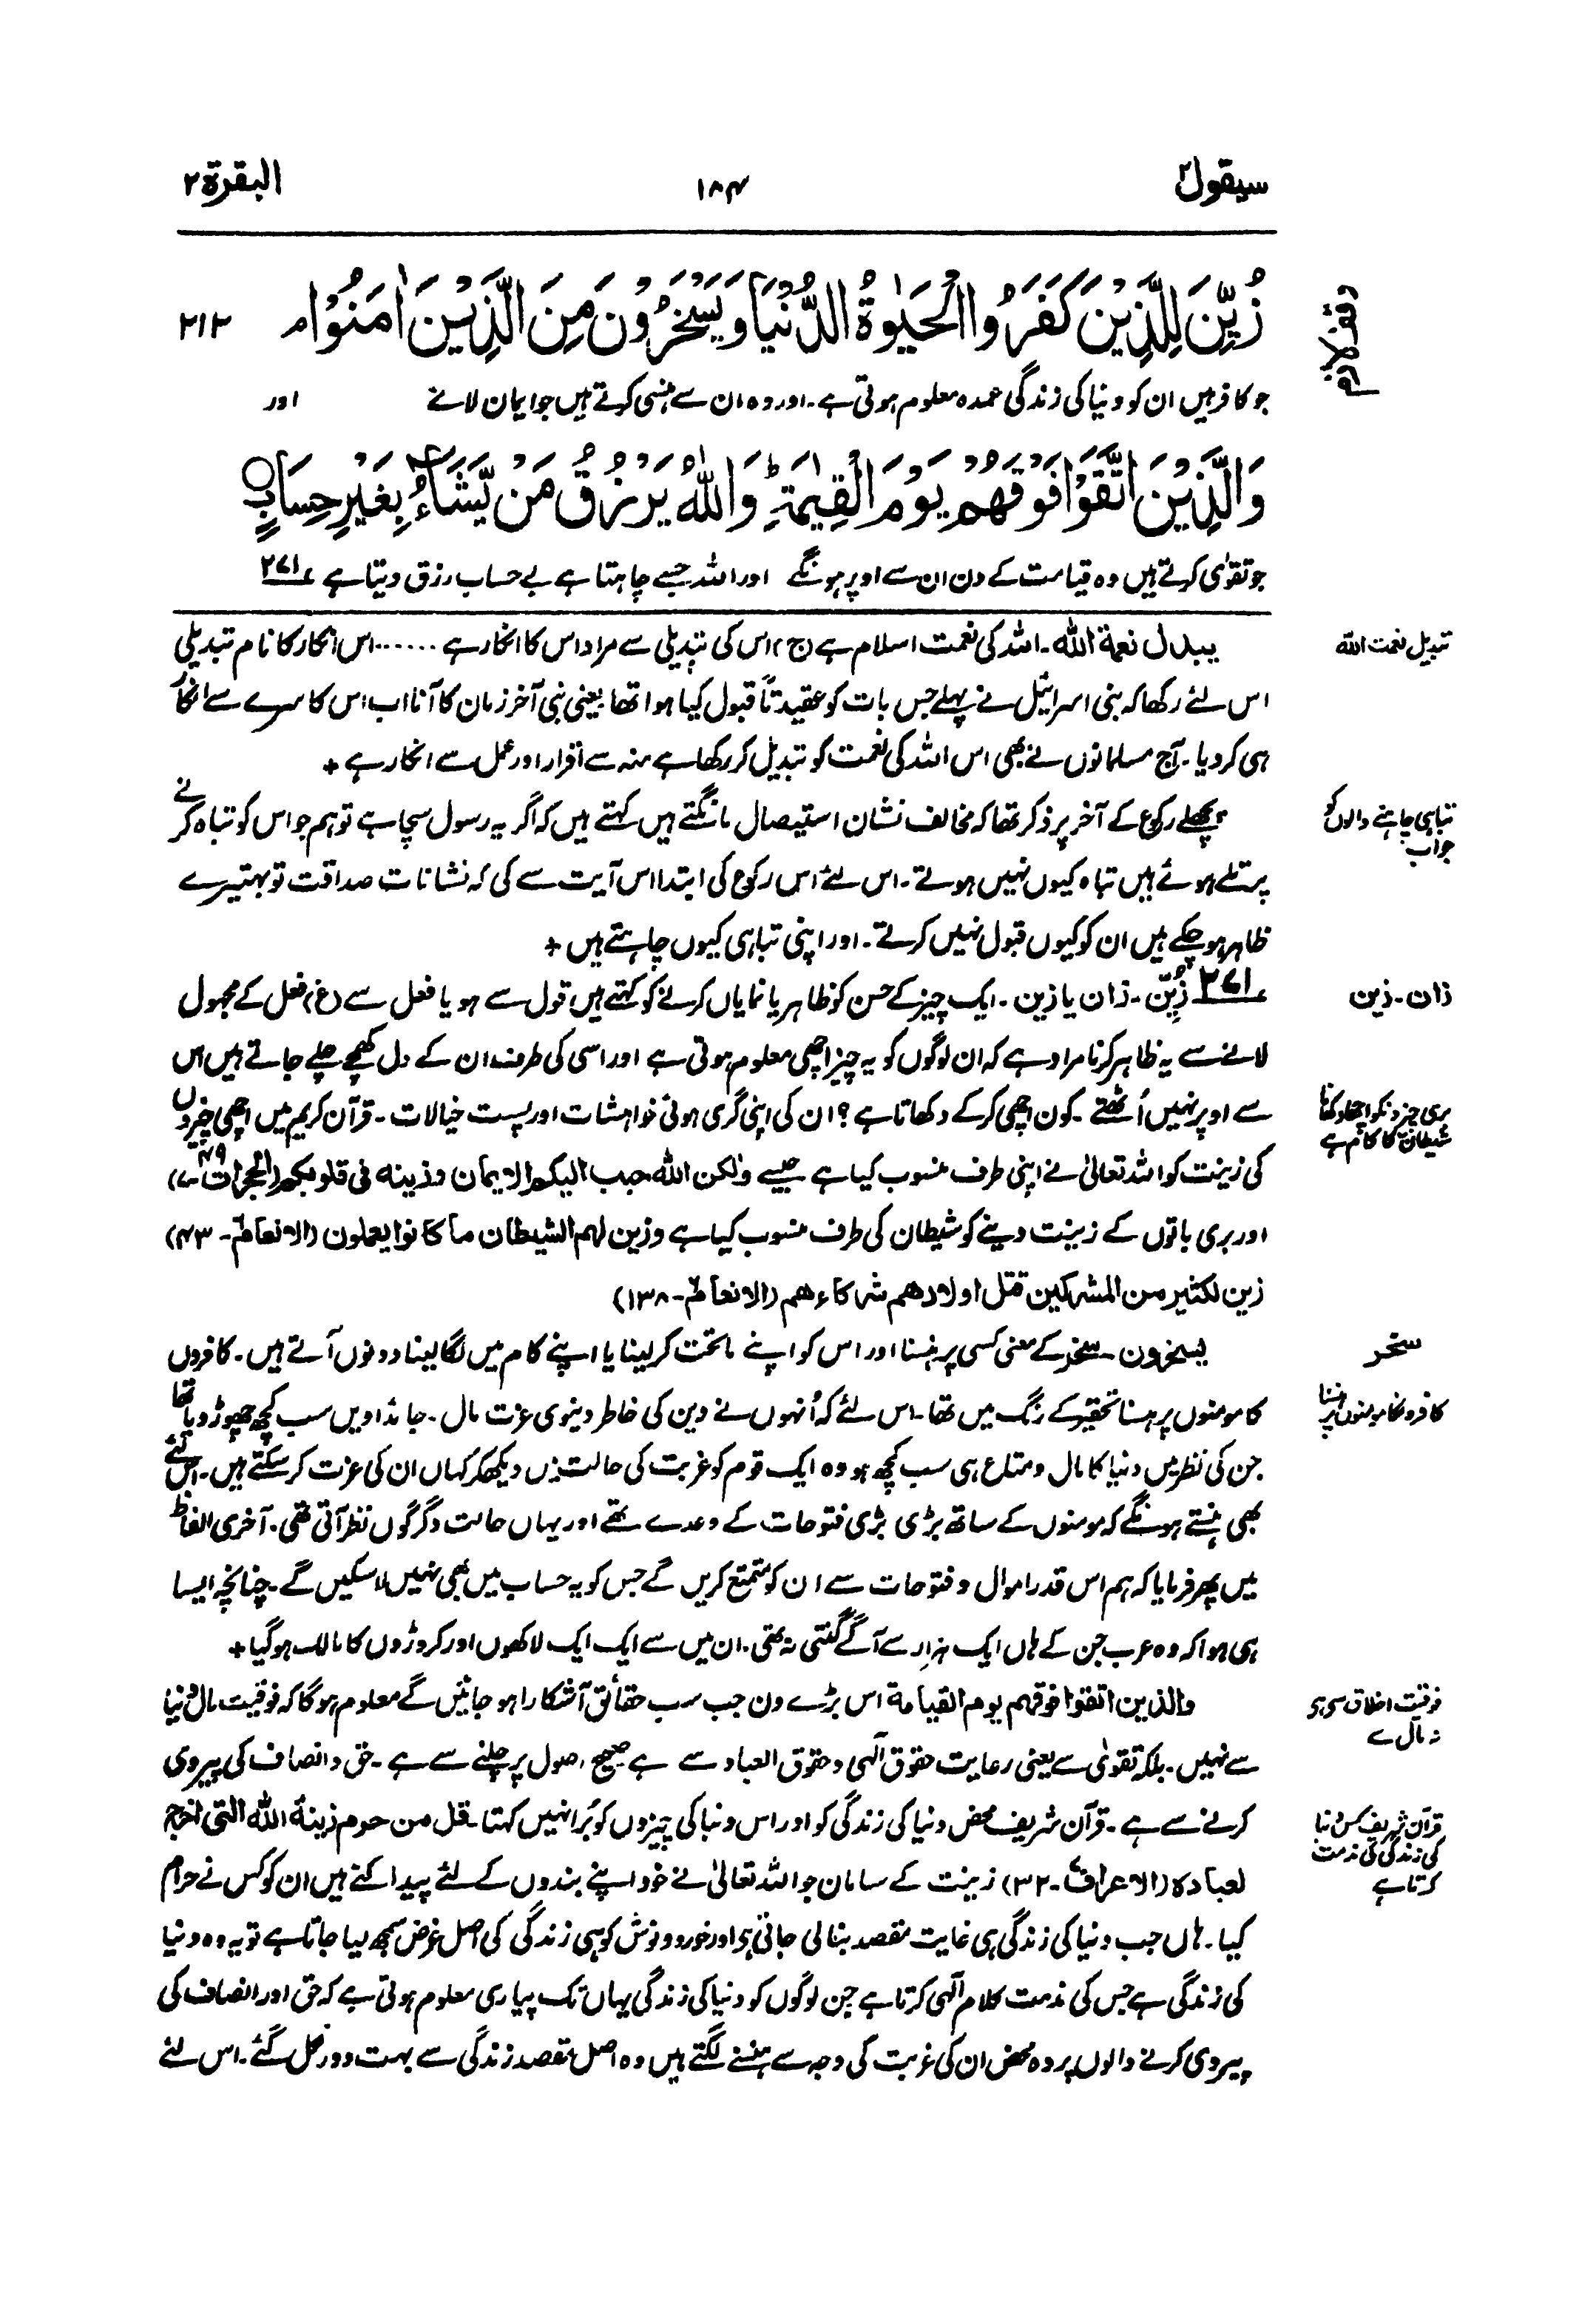 سیقول ۲
۱۸۴
البقرة ۲
وقف لازم
زُيِّنَ لِلَّذِيْنَ كَفَرُوا الْحَيٰوةُ الدُّنْيَا وَيَسْخَرُوْنَ مِنَ الَّذِيْنَ اٰمَنُوْا م ۲۱۲
جو کافر ہیں ان کو دنیا کی زندگی عمدہ معلوم ہوتی ہے۔ اور وہ ان سے ہنسی کرتے ہیں جو ایمان لائے اور
وَالَّذِيْنَ اتَّقَوْا فَوْقَهُمْ يَوْمَ الْقِيٰمَةِ ؕ وَاللّٰهُ يَرْزُقُ مَنْ يَّشَآءُ بِغَيْرِ حِسَابٍ ○
جو تقوٰی کرتے ہیں وہ قیامت کے دن ان سے اوپر ہونگے اور اللہ جسے چاہتا ہے بے حساب رزق دیتا ہے ۲۷۱
تبدیل نعمت اللہ
یبدل نعمة الله۔ اللہ کی نعمت اسلام ہے (ج) اس کی تبدیلی سے مراد اس کا انکار ہے ...... اس انکار کا نام تبدیلی
اس لئے رکھا کہ بنی اسرائیل نے پہلے جس بات کو عقیدتاً قبول کیا ہوا تھا یعنی نبی آخر زمان کا آنا اب اس کا سرے سے انکار
ہی کردیا۔ آج مسلمانوں نے بھی اس اللہ کی نعمت کو تبدیل کر رکھا ہے منہ سے اقرار اور عمل سے انکار ہے +
تباہی چاہنے والوں کو
جواب
پچھلے رکوع کے آخر پر ذکر تھا کہ مخالف نشان استیصال مانگتے ہیں کہتے ہیں کہ اگر یہ رسول سچا ہے تو ہم جو اس کو تباہ کرنے
پر تلے ہوئے ہیں تباہ کیوں نہیں ہوتے۔ اس لئے اس رکوع کی ابتدا اس آیت سے کی کہ نشانات صداقت تو بہتیرے
ظاہر ہو چکے ہیں ان کو کیوں قبول نہیں کرتے۔ اور اپنی تباہی کیوں چاہتے ہیں +
زان۔ زین
۲۷۱ زُیِّن۔ زان یا زین۔ ایک چیز کے حسن کو ظاہر یا نمایاں کرنے کو کہتے ہیں قول سے ہو یا فعل سے (غ) فعل کے مجہول
لانے سے یہ ظاہر کرنا مراد ہے کہ ان لوگوں کو یہ چیز اچھی معلوم ہوتی ہے اور اسی کی طرف ان کے دل کھچے چلے جاتے ہیں اس
بری چیزونکو اچھا دکھانا
شیطان کا کام ہے
سے اوپر نہیں اُٹھتے۔ کون اچھی کرکے دکھاتا ہے؟ ان کی اپنی گری ہوئی خواہشات اور پست خیالات۔ قرآن کریم میں اچھی چیزوں
کی زینت کو اللہ تعالیٰ نے اپنی طرف منسوب کیا ہے جیسے ولکن الله حبب الیکم الایمان وزینه فی قلوبکم (الحجرات ۴۹۔۷)
اور بری باتوں کے زینت دینے کو شیطان کی طرف منسوب کیا ہے وزین لہم الشیطان ما کانوا یعملون (الانعام ۶۔ ۴۳)
زین لکثیر من المشرکین قتل اولادهم شرکاءهم (الانعام ۶۔ ۱۳۸)
سخر
یسخرون۔ سخر کے معنی کسی پر ہنسنا اور اس کو اپنے ماتحت کر لینا یا اپنے کام میں لگا لینا دونوں آتے ہیں۔ کافروں
کافرونکا مومنوں پر ہنسنا
کا مومنوں پر ہنسنا تحقیر کے رنگ میں تھا۔ اس لئے کہ اُنہوں نے دین کی خاطر دنیوی عزت مال۔ جائدادیں سب کچھ چھوڑ دیا تھا
جن کی نظر میں دنیا کا مال و متاع ہی سب کچھ ہو وہ ایک قوم کو غربت کی حالت میں دیکھکر کہاں ان کی عزت کر سکتے ہیں۔ اس لئے
بھی ہنستے ہونگے کہ مومنوں کے ساتھ بڑی بڑی فتوحات کے وعدے تھے اور یہاں حالت دگرگوں نظر آتی تھی۔ آخری الفاظ
میں پھر فرمایا کہ ہم اس قدر اموال و فتوحات سے ان کو متمتع کریں گے جس کو یہ حساب میں بھی نہیں لا سکیں گے۔ چنانچہ ایسا
ہی ہوا کہ وہ عرب جن کے ہاں ایک ہزار سے آگے گنتی نہ تھی۔ ان میں سے ایک ایک لاکھوں اور کروڑوں کا مالک ہو گیا +
فوقیت اخلاق سے ہے
نہ مال سے
والذین اتقوا فوقهم یوم القیامة اس بڑے دن جب سب حقائق آشکارا ہو جائیں گے معلوم ہوگا کہ فوقیت مال دنیا
سے نہیں۔ بلکہ تقوٰی سے یعنی رعایت حقوق الٰہی و حقوق العباد سے ہے صحیح اصول پر چلنے سے ہے۔ حق و انصاف کی پیروی
قرآن شریف کس دنیا
کی زندگی کی مذمت
کرتا ہے
کرنے سے ہے۔ قرآن شریف محض دنیا کی زندگی کو اور اس دنیا کی چیزوں کو بُرا نہیں کہتا۔ قل من حرم زینة الله التی اخرج
لعباده (الاعراف ۷۔ ۳۲) زینت کے سامان جو اللہ تعالیٰ نے خود اپنے بندوں کے لئے پیدا کئے ہیں ان کو کس نے حرام
کیا۔ ہاں جب دنیا کی زندگی ہی غایت مقصد بنا لی جاتی ہے اور خورد و نوش کو ہی زندگی کی اصل غرض سمجھ لیا جاتا ہے تو یہ وہ دنیا
کی زندگی ہے جس کی مذمت کلام الٰہی کرتا ہے جن لوگوں کو دنیا کی زندگی یہاں تک پیاری معلوم ہوتی ہے کہ حق اور انصاف کی
پیروی کرنے والوں پر وہ محض ان کی غربت کی وجہ سے ہنسنے لگتے ہیں وہ اصل مقصد زندگی سے بہت دور نکل گئے۔ اس لئے